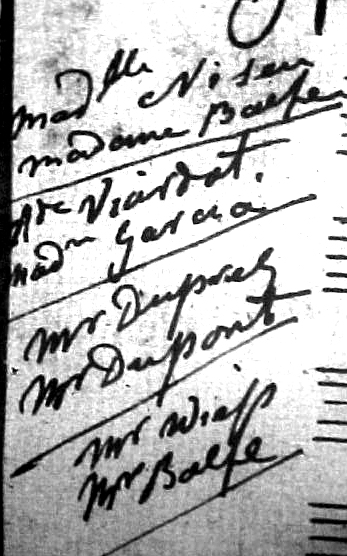 Mad lle Nisen
madame Balfe
Mde Viardot.
mad m Garcia
Mr Duprez
Mr Dupont
Mr Wieß
Mr Balfe